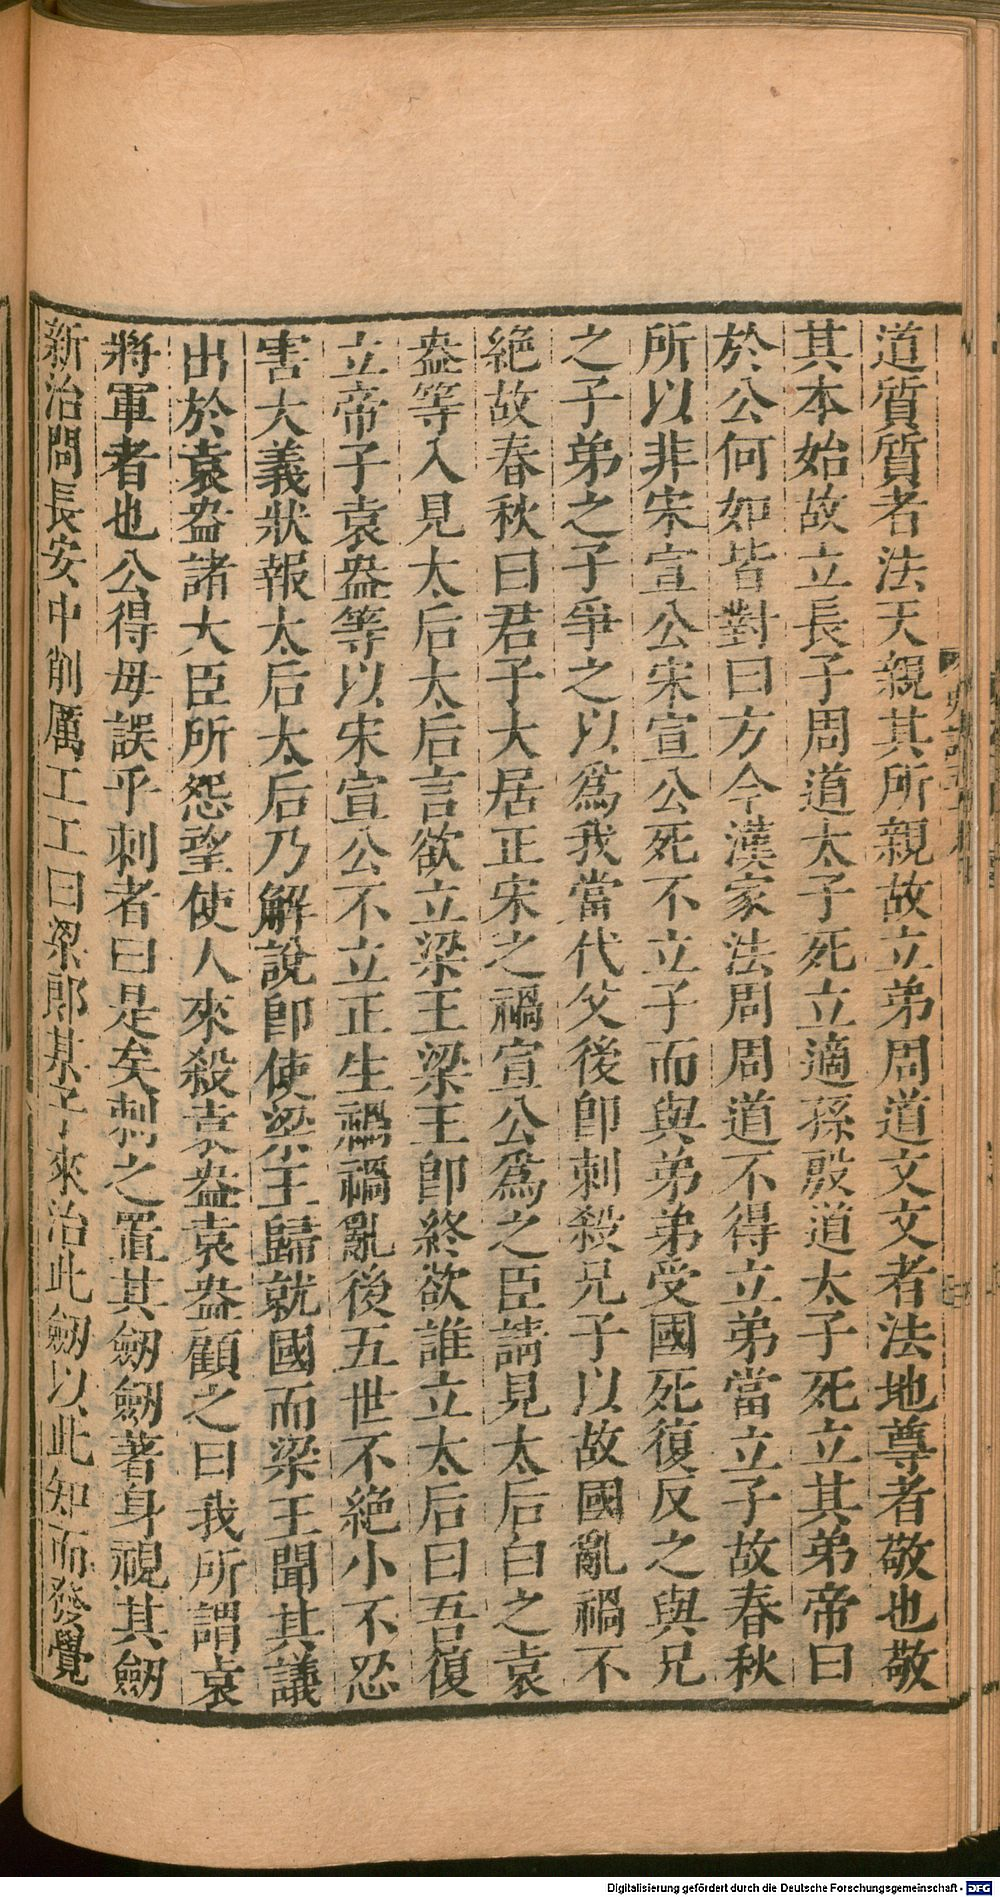 道質質者法天親其所親故立弟周道文文者法地尊者敬也敬
其本始故立長子周道太子死立適孫殷道太子死立其弟帝曰
於公何如皆對曰方今漢家法周周道不得立弟當立子故春秋
所以非宋宣公宋宣公死不立子而與弟弟受國死復反之與兄
之子弟之子爭之以爲我當代父後卽刺殺兄子以故國亂禍不
絕故春秋曰君子大居正宋之禍宣公爲之臣請見太后白之袁
盎等入見太后太后言欲立梁王梁王卽終欲誰立太后曰吾復
立帝子袁盎等以宋宣公不立正生禍禍亂後五世不絕小不忍
害大義狀報太后太后乃解說卽使梁王歸就國而梁王聞其議
出於袁盎諸大臣所怨望使人來殺袁盎袁盎顧之曰我所謂袁
將軍者也公得毋誤乎刺者曰是矣刺之置其劒劒著身視其劒
新治問長安中削厲工工曰梁郎某子來治此劒以此知而發覺
Digitalisierung gefördert durch die Deutsche Forschungsgemeinschaft - DFG